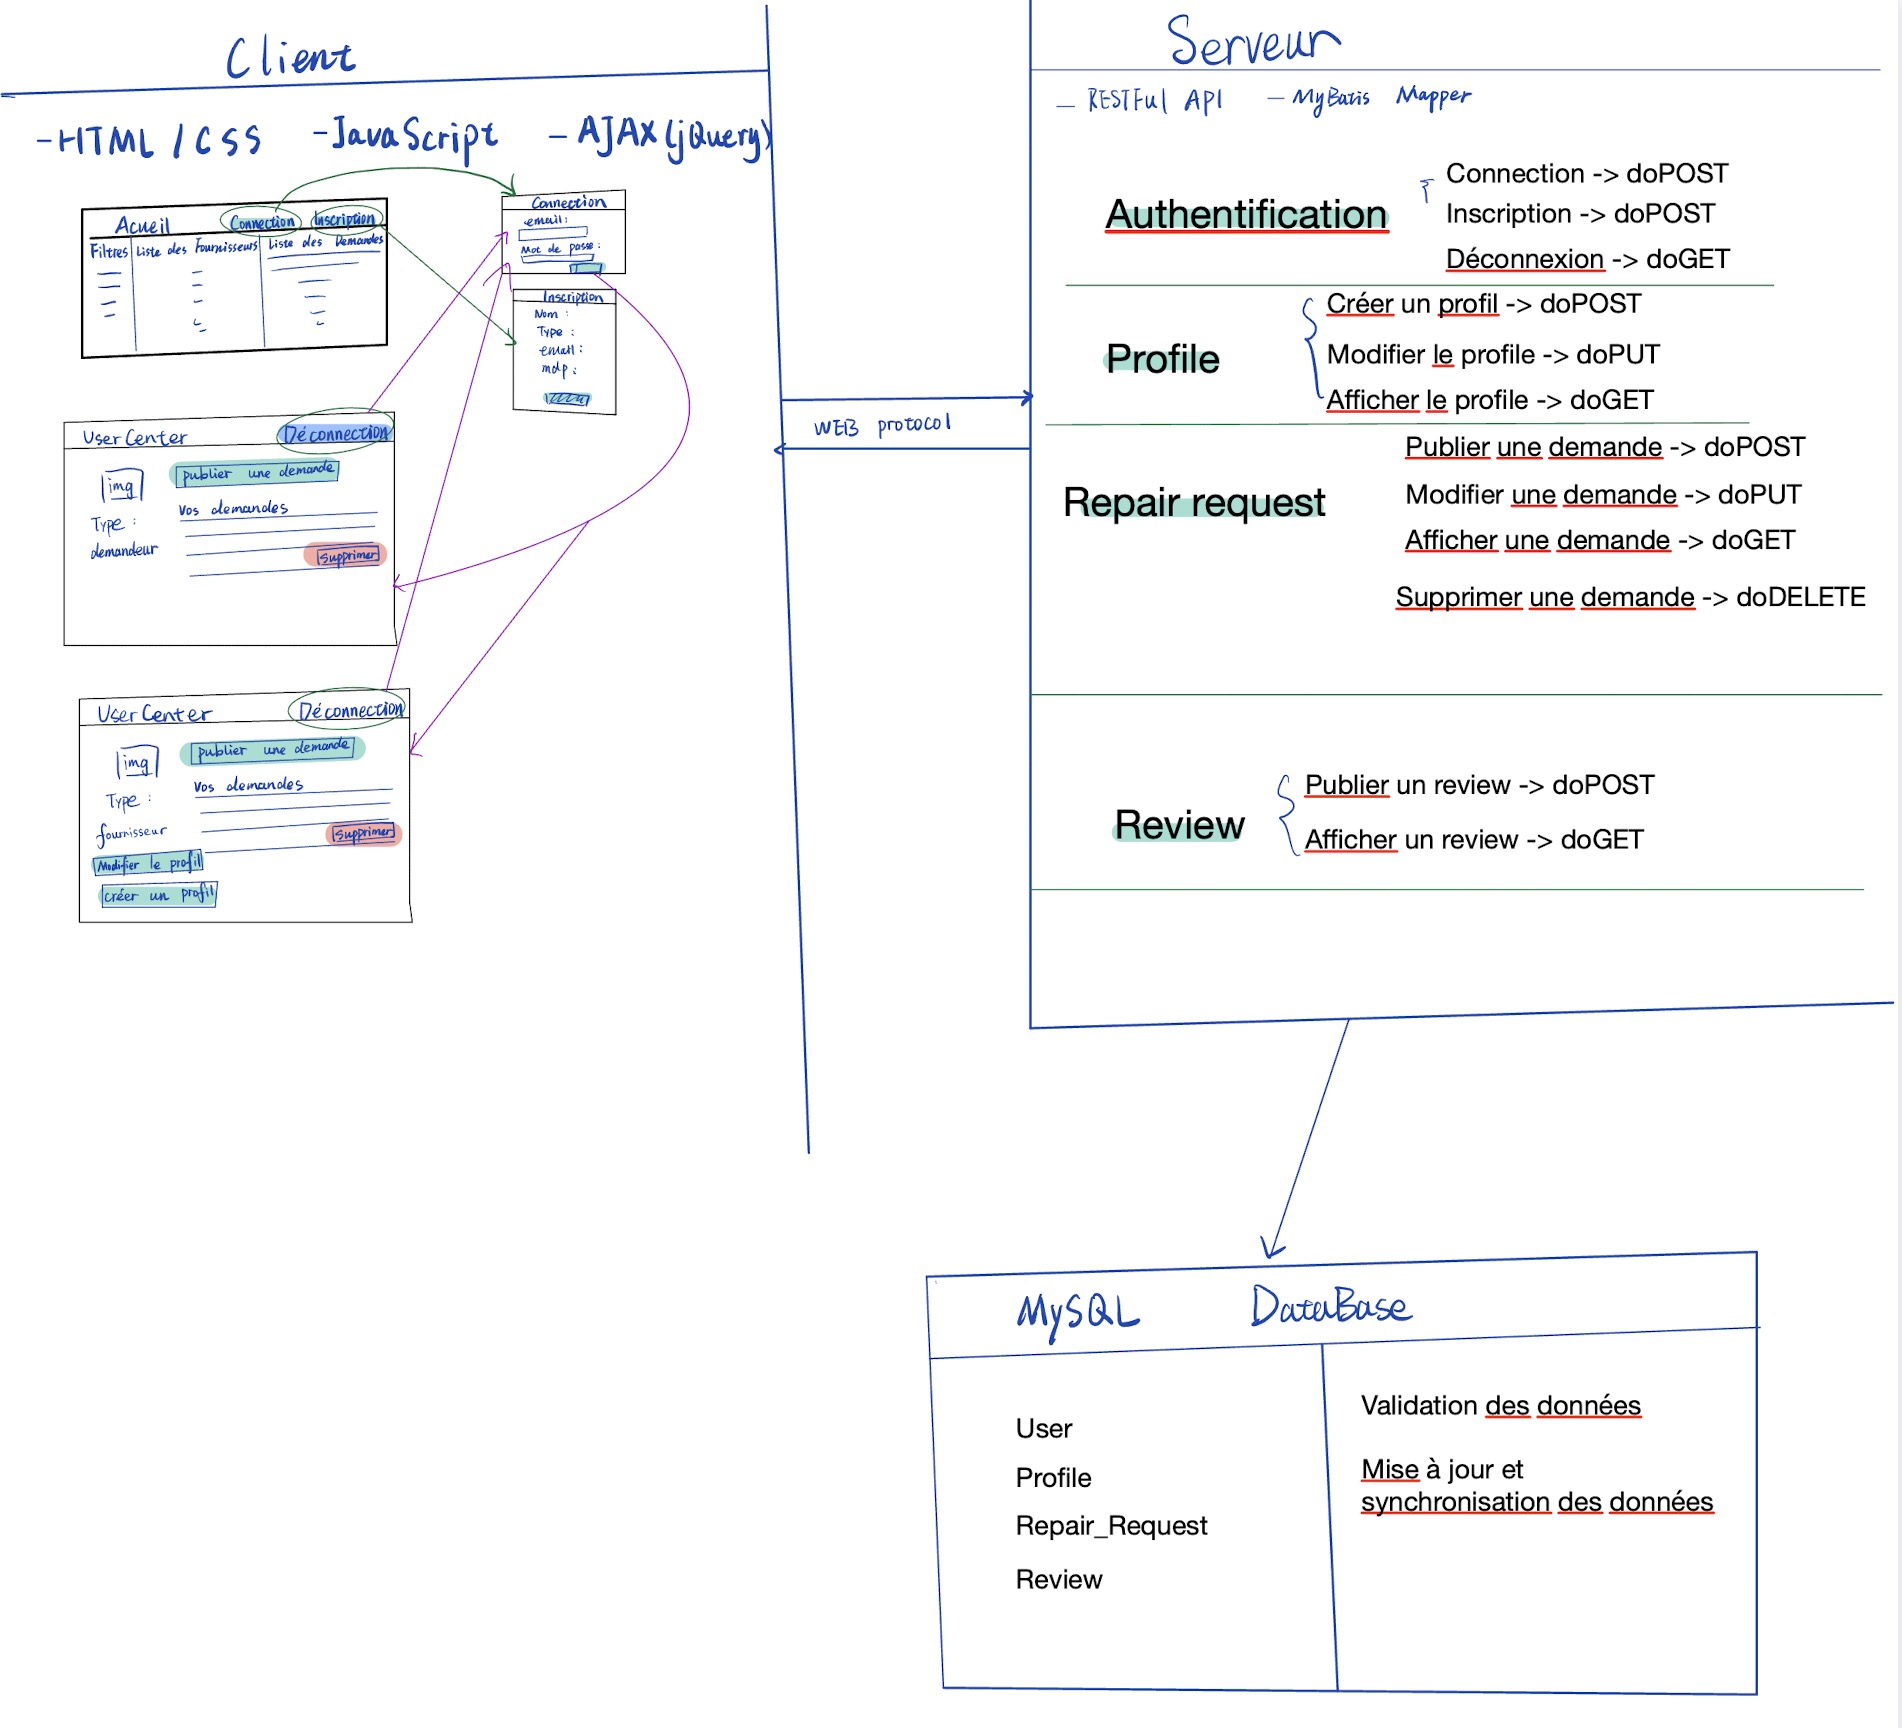 Client
- HTML / CSS - JavaScript - AJAX (jQuery)
Acueil Connection Inscription
Filtres Liste des Fournisseurs Liste des Demandes
Connection
email:
Mot de passe:
Inscription
Nom :
Type :
email :
mdp :
User Center Déconnection
img
publier une demande
Vos demandes
Type :
demandeur
supprimer
User Center Déconnection
img
publier une demande
Vos demandes
Type :
fournisseur
supprimer
Modifier le profil
créer un profil
WEB protocol
Serveur
- RESTFul API - MyBatis Mapper
Authentification
Connection -> doPOST
Inscription -> doPOST
Déconnexion -> doGET
Profile
Créer un profil -> doPOST
Modifier le profile -> doPUT
Afficher le profile -> doGET
Repair request
Publier une demande -> doPOST
Modifier une demande -> doPUT
Afficher une demande -> doGET
Supprimer une demande -> doDELETE
Review
Publier un review -> doPOST
Afficher un review -> doGET
MySQL DataBase
User
Profile
Repair_Request
Review
Validation des données
Mise à jour et
synchronisation des données